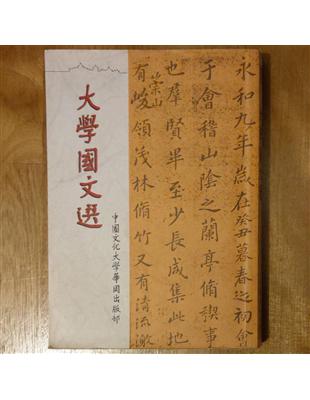 大學國文選
中國文化大學華岡出版部
永和九年歲在癸丑暮春之初會
于會稽山陰之蘭亭脩稧事
也羣賢畢至少長咸集此地
有崇山峻領茂林脩竹又有清流激